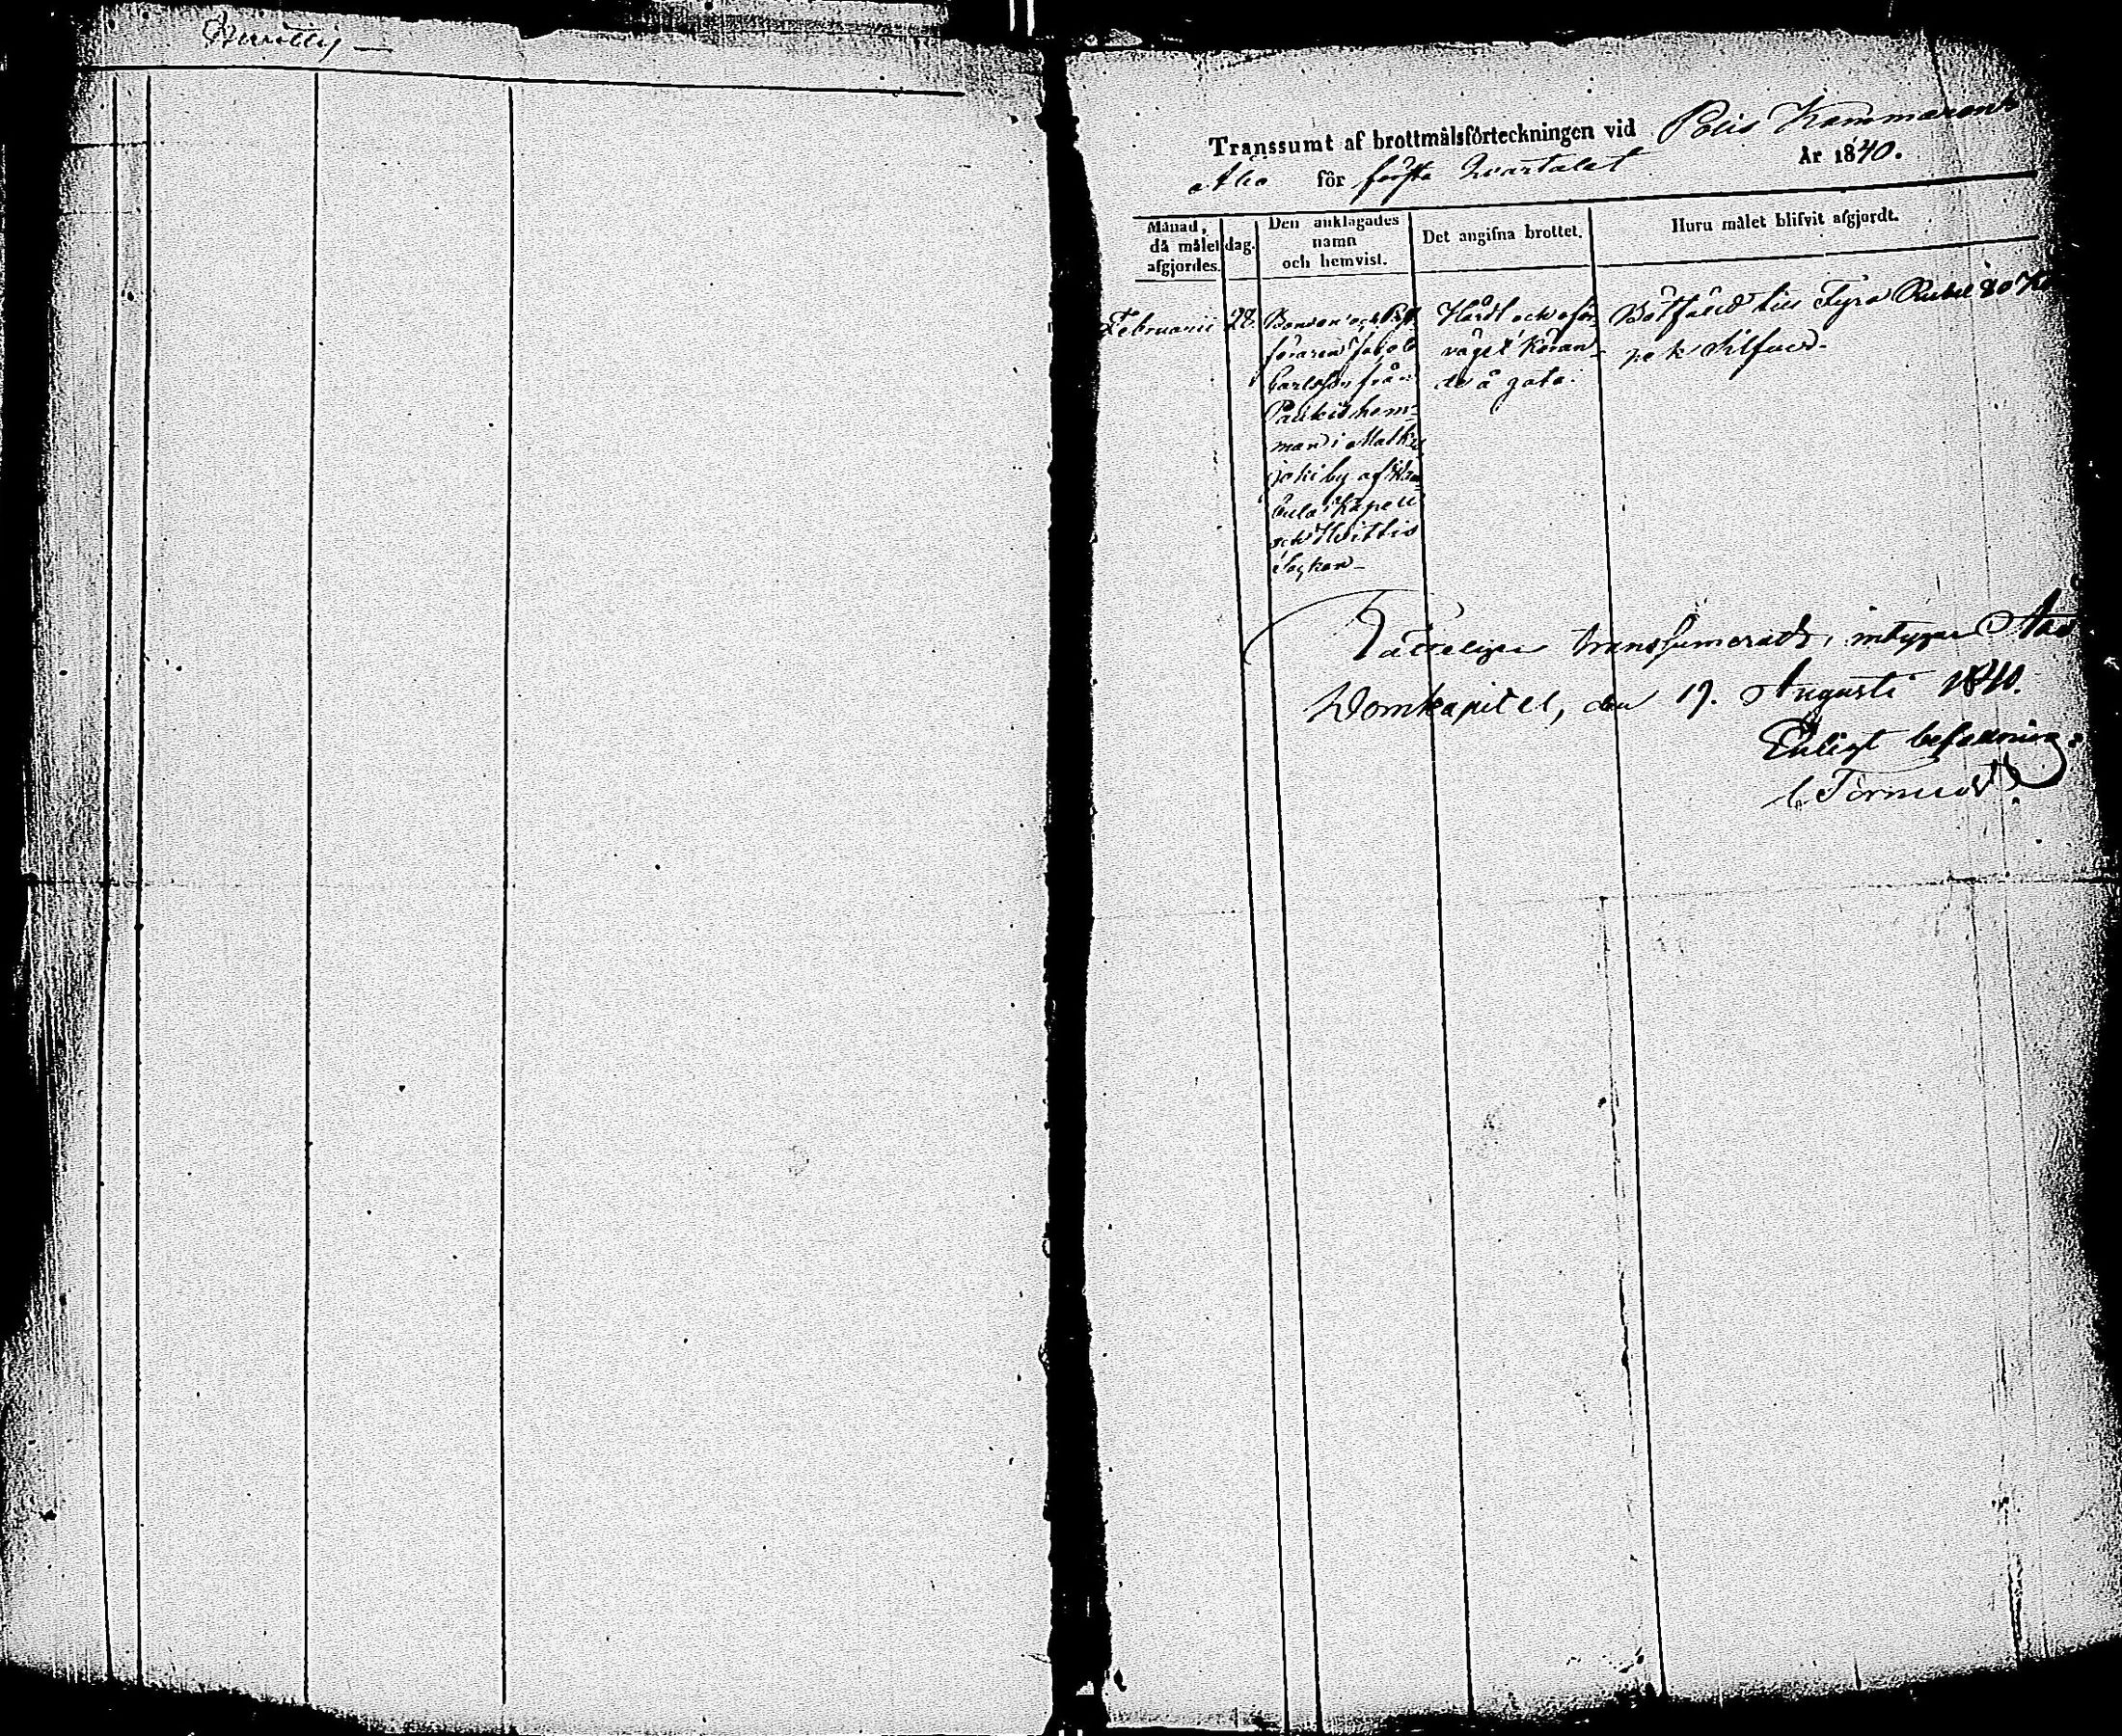 Huvittis —
Transsumt af brottmålsförteckningen vid Polis Kammaren i
Åbo för första Quartalet År 1840.
Månad, då målet afgjordes.
dag.
Den anklagades namn och hemvist.
Det angifna brottet.
Huru målet blifvit afgjordt.
Februarii
28.
Bonden och
föraren Jakob
Carlsson från
Paukis hem-
man i Matku
joki by af
Kapell
och Hvittis
Socken —
Hårdt och oför-
väget köran-
de å gata.
Bötfäld till Fyra Rubel 80 Ko
pek Silfver.
transsumeradt, intygar Åbo
Domkapitel, den 19. Augusti 1840.
Enligt befallning:
C. Törnudd